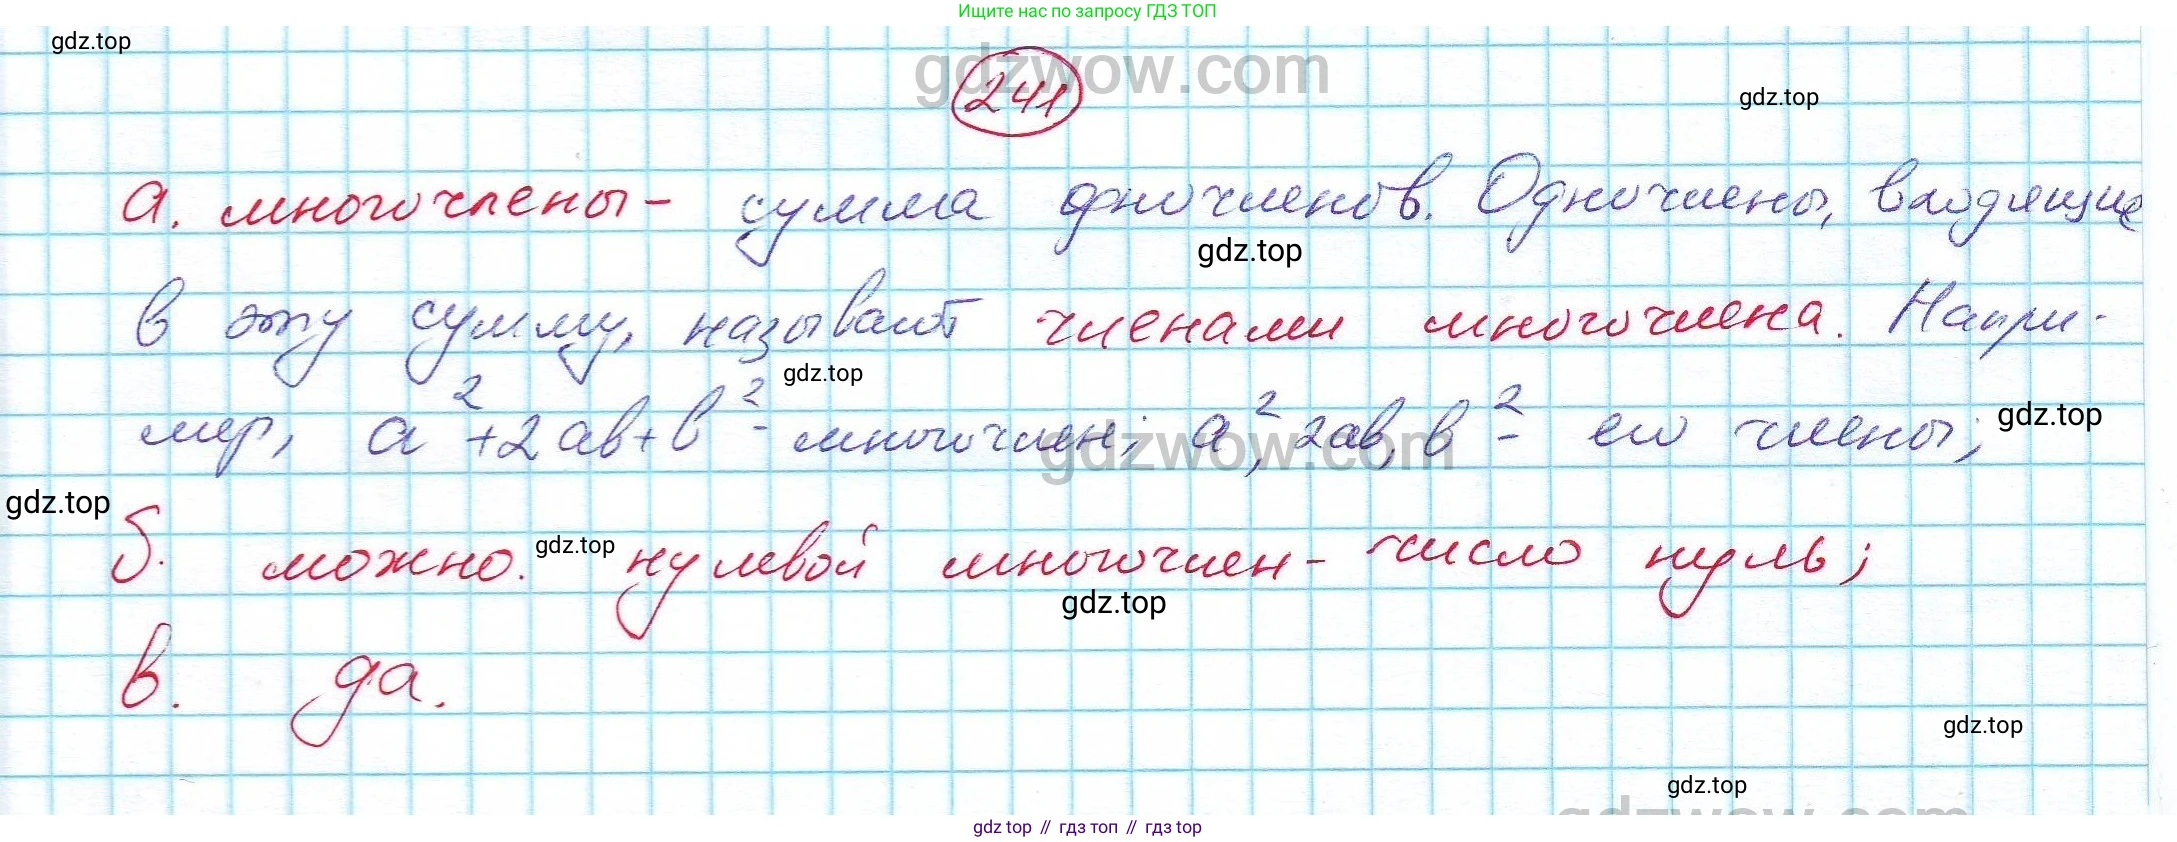 Ищите нас по запросу ГДЗ ТОП
gdz.top
gdzwow.com
241
gdz.top
а. многочлены - сумма одночленов. Одночлены, входящие
gdz.top
в эту сумму, называют членами многочлена. Напри-
gdz.top
мер, a²+2ab+b² - многочлен; a², 2ab, b² - его члены;
gdz.top
gdzwow.com
gdz.top
б. можно. нулевой многочлен - число нуль;
gdz.top
gdz.top
в. да.
gdz.top
gdz.top
gdzwow.com
gdz top // гдз топ // гдз top